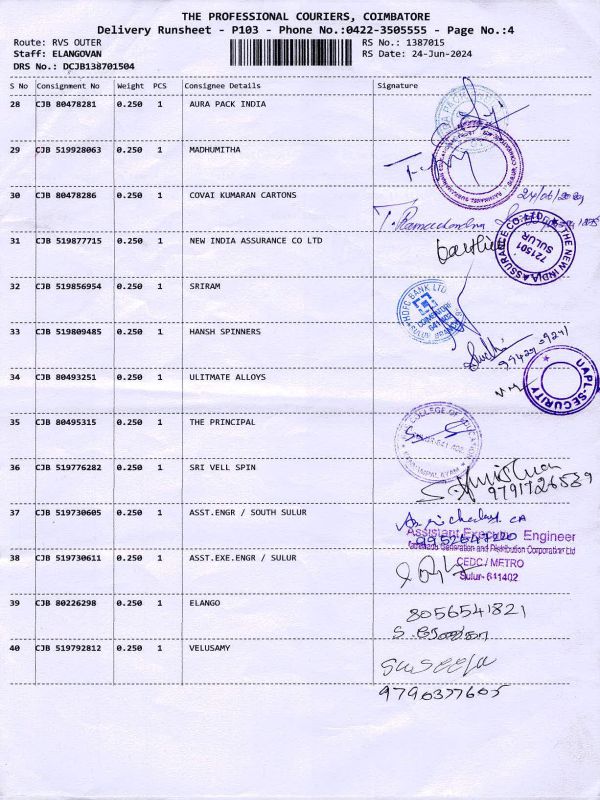 THE PROFESSIONAL COURIERS, COIMBATORE
Delivery Runsheet - P103 - Phone No.:0422-3505555 - Page No.:4
Route: RVS OUTER RS No.: 1387015
Staff: ELANGOVAN RS Date: 24-Jun-2024
DRS No.: DCJB138701504
S No Consignment No Weight PCS Consignee Details Signature
28 CJB 80478281 0.250 1 AURA PACK INDIA
29 CJB 519928063 0.250 1 MADHUMITHA
30 CJB 80478286 0.250 1 COVAI KUMARAN CARTONS
24/06/2024
T. Ramachandra
31 CJB 519877715 0.250 1 NEW INDIA ASSURANCE CO LTD
THE NEW INDIA ASSURANCE CO. LTD.
721501
SULUR
32 CJB 519856954 0.250 1 SRIRAM
HDFC BANK LTD
COIMBATORE
641402
SULUR BRANCH
33 CJB 519809485 0.250 1 HANSH SPINNERS
34 CJB 80493251 0.250 1 ULITMATE ALLOYS
UAPL-SECURITY
35 CJB 80495315 0.250 1 THE PRINCIPAL
COLLEGE OF EDUCATION
36 CJB 519776282 0.250 1 SRI VELL SPIN
9791726589
37 CJB 519730605 0.250 1 ASST.ENGR / SOUTH SULUR
Assistant Executive Engineer
Generation and Distribution Corporation Ltd
38 CJB 519730611 0.250 1 ASST.EXE.ENGR / SULUR
CEDC / METRO
Sulur- 641402
39 CJB 80226298 0.250 1 ELANGO
8056541821
40 CJB 519792812 0.250 1 VELUSAMY
9790377605